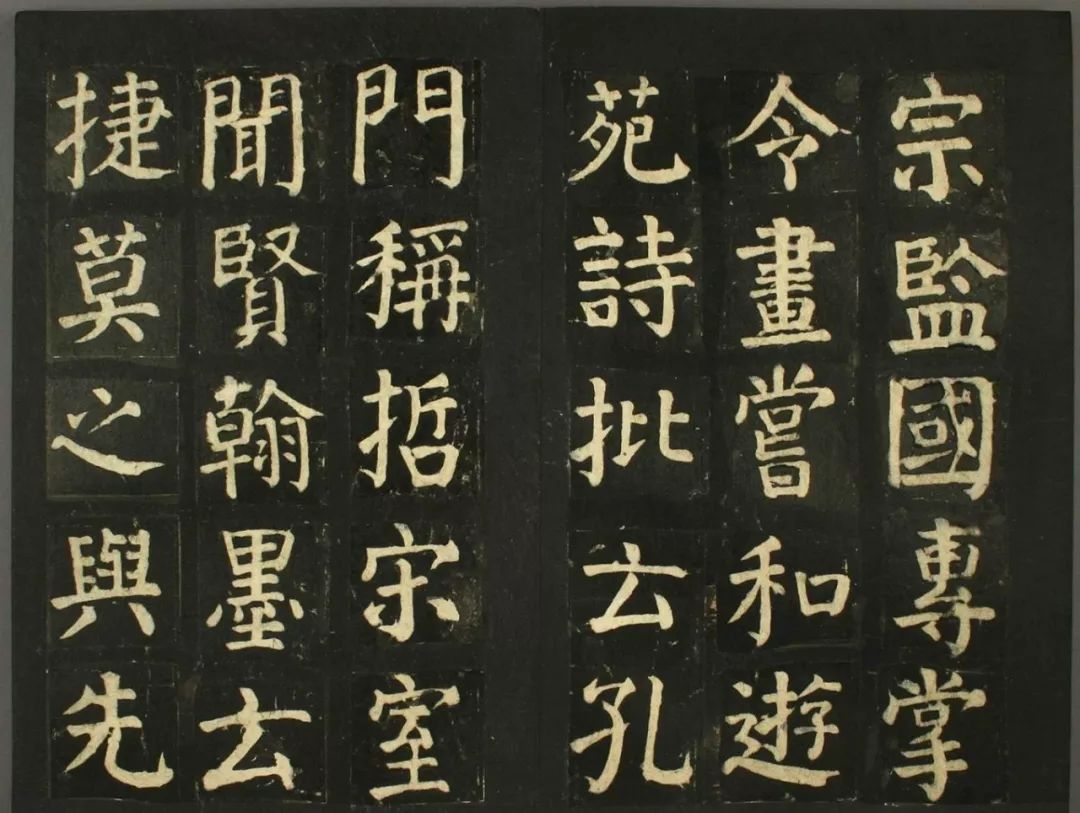 宗監國專掌
令畫嘗和遊
苑詩批云孔
門稱哲宋室
聞賢翰墨玄
捷莫之與先